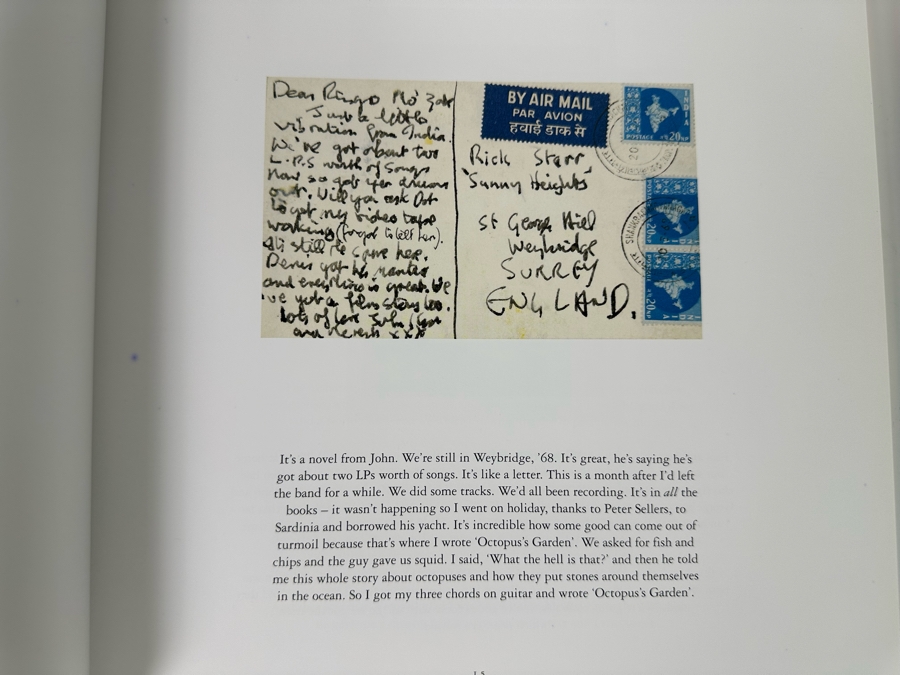 Dear Ringo Mo' Zak
Just a little
vibration from India.
We've got about two
L.P.S worth of songs
now so get yer drums
out. Will you ask Dot
to get my video tape
working (forgot to tell her).
It's still the same here.
and everything is great. We
've got a film story too.
Lots of love John
xxx
BY AIR MAIL
PAR AVION
हवाई डाक से
Rick Starr
'Sunny Heights'
St George Hill
Weybridge
SURREY
ENGLAND.
INDIA
POSTAGE 20 NP
INDIA
POSTAGE 20 NP
INDIA
POSTAGE 20 NP
It's a novel from John. We're still in Weybridge, '68. It's great, he's saying he's
got about two LPs worth of songs. It's like a letter. This is a month after I'd left
the band for a while. We did some tracks. We'd all been recording. It's in all the
books – it wasn't happening so I went on holiday, thanks to Peter Sellers, to
Sardinia and borrowed his yacht. It's incredible how some good can come out of
turmoil because that's where I wrote 'Octopus's Garden'. We asked for fish and
chips and the guy gave us squid. I said, 'What the hell is that?' and then he told
me this whole story about octopuses and how they put stones around themselves
in the ocean. So I got my three chords on guitar and wrote 'Octopus's Garden'.